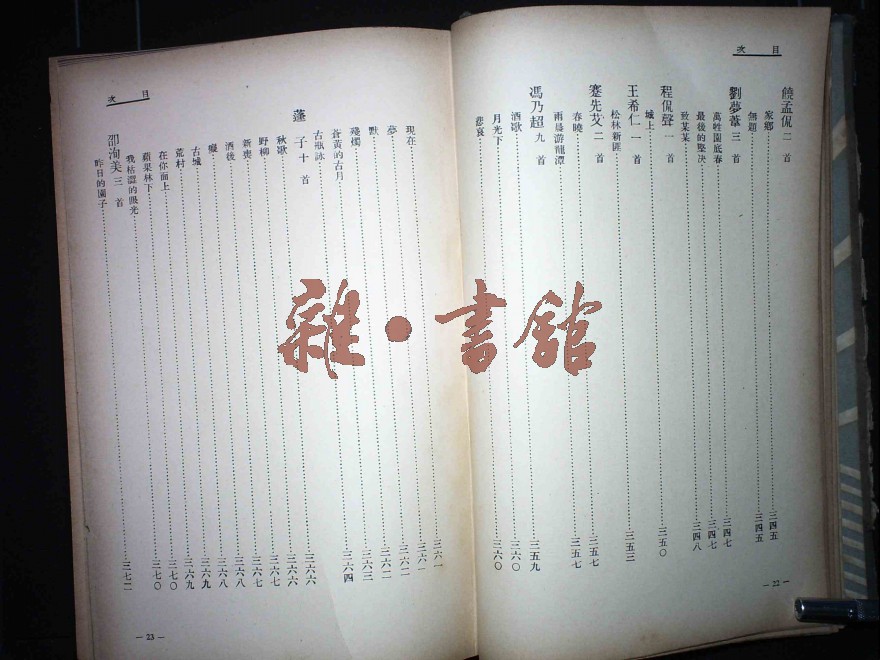 目次
饒孟侃 二首
家鄉……三四五
無題……三四五
劉夢葦 三首
萬牲園底春……三四七
最後的堅決……三四七
致某某……三四八
程侃聲 一首
城上……三五〇
王希仁 一首
松林新匪……三五三
蹇先艾 二首
春曉……三五七
雨晨游龍潭……三五七
馮乃超 九首
酒歌……三五九
月光下……三六〇
悲哀……三六〇
— 22 —
目次
現在……三六一
夢……三六一
默……三六二
殘燭……三六二
蒼黃的古月……三六三
古瓶詠……三六四
蓬子 十首
秋歌……三六六
野柳……三六六
新喪……三六七
酒後……三六七
古城……三六八
荒村……三六九
在你面上……三六九
蘋果林下……三七〇
我枯澀的眼光……三七〇
邵洵美 三首
昨日的園子……三七二
— 23 —
雜·書館